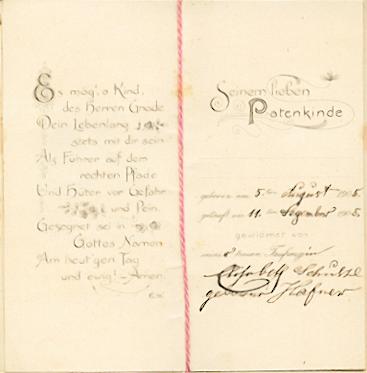 Es mög', o Kind,
des Herren Gnade
Dein Lebenlang
stets mit dir sein
Als Führer auf dem
rechten Pfade
Und Hüter vor Gefahr
und Pein.
Gesegnet sei in
Gottes Namen
Am heut'gen Tag
und ewig! - Amen.
Seinem lieben
Patenkinde
geboren am 5. ten August 1905.
getauft am 11. ten 1905.
gewidmet von
Schulze
Hafner